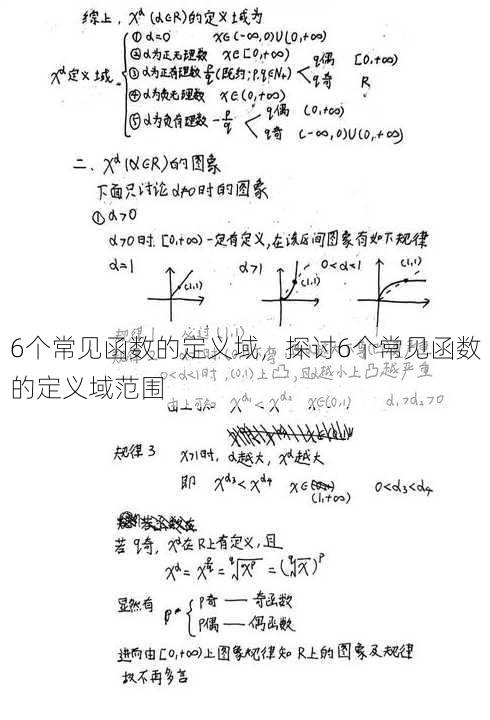 综上，x^α (α∈R)的定义域为
x^α定义域
① α=0 x∈(-∞,0)∪(0,+∞)
② α为正无理数 x∈[0,+∞)
③ α为正有理数 p/q (既约;p,q∈N+) q偶 [0,+∞)
q奇 R
④ α为负无理数 x∈(0,+∞)
⑤ α为负有理数 -p/q q偶 (0,+∞)
q奇 (-∞,0)∪(0,+∞)
二、x^α (α∈R)的图象
下面只讨论 α≠0时的图象
① α>0
α>0时 [0,+∞)一定有定义,在该区间图象有如下规律
α=1 α>1 0<α<1
(1,1) (1,1) (1,1)
规律1 必过(1,1)
6个常见函数的定义域，探讨6个常见函数
的定义域范围
0<α<1时,(0,1)上凸,且α越小上凸越严重
由上可知 x^α₁<x^α₂ x∈(0,1) α₁>α₂>0
规律3 x>1时, α越大, x^α越大
即 x^α₃<x^α₄ x∈(1,+∞) 0<α₃<α₄
若q奇, x^α在R上有定义,且
x^α=x^(p/q)=q√x^p=(q√x)^p
显然有 p p奇——奇函数
p偶——偶函数
进而由[0,+∞)上图象规律知R上的图象及规律
故不再多言